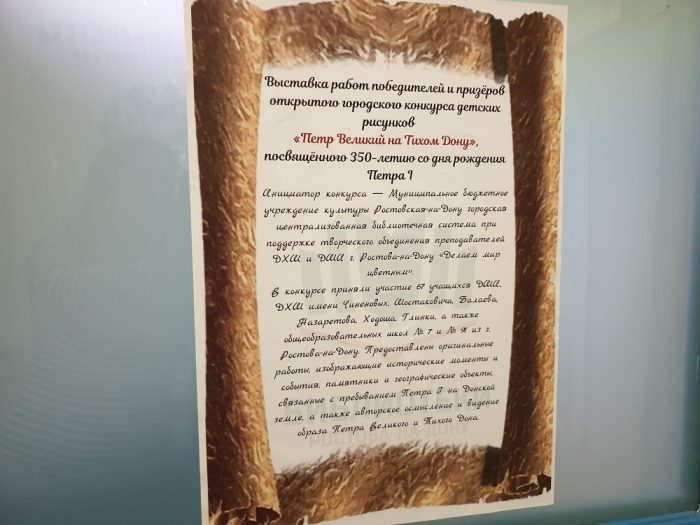 Выставка работ победителей и призёров
открытого городского конкурса детских
рисунков
«Петр Великий на Тихом Дону»,
посвящённого 350-летию со дня рождения
Петра I
Инициатор конкурса — Муниципальное бюджетное
учреждение культуры Ростовская-на-Дону городская
централизованная библиотечная система при
поддержке творческого объединения преподавателей
ДХШ и ДШИ г. Ростова-на-Дону «Делаем мир
цветным».
В конкурсе приняли участие 67 учащихся ДШИ,
ДХШ имени Чиненовых, Шостаковича, Балаева,
Назаретова, Ходоша, Глинки, а также
общеобразовательных школ № 7 и № из г.
Ростова-на-Дону. Предоставлены оригинальные
работы, изображающие исторические моменты и
события, памятники и географические объекты,
связанные с пребыванием Петра I на Донской
земле, а также авторское осмысление и видение
образа Петра Великого и Тихого Дона.